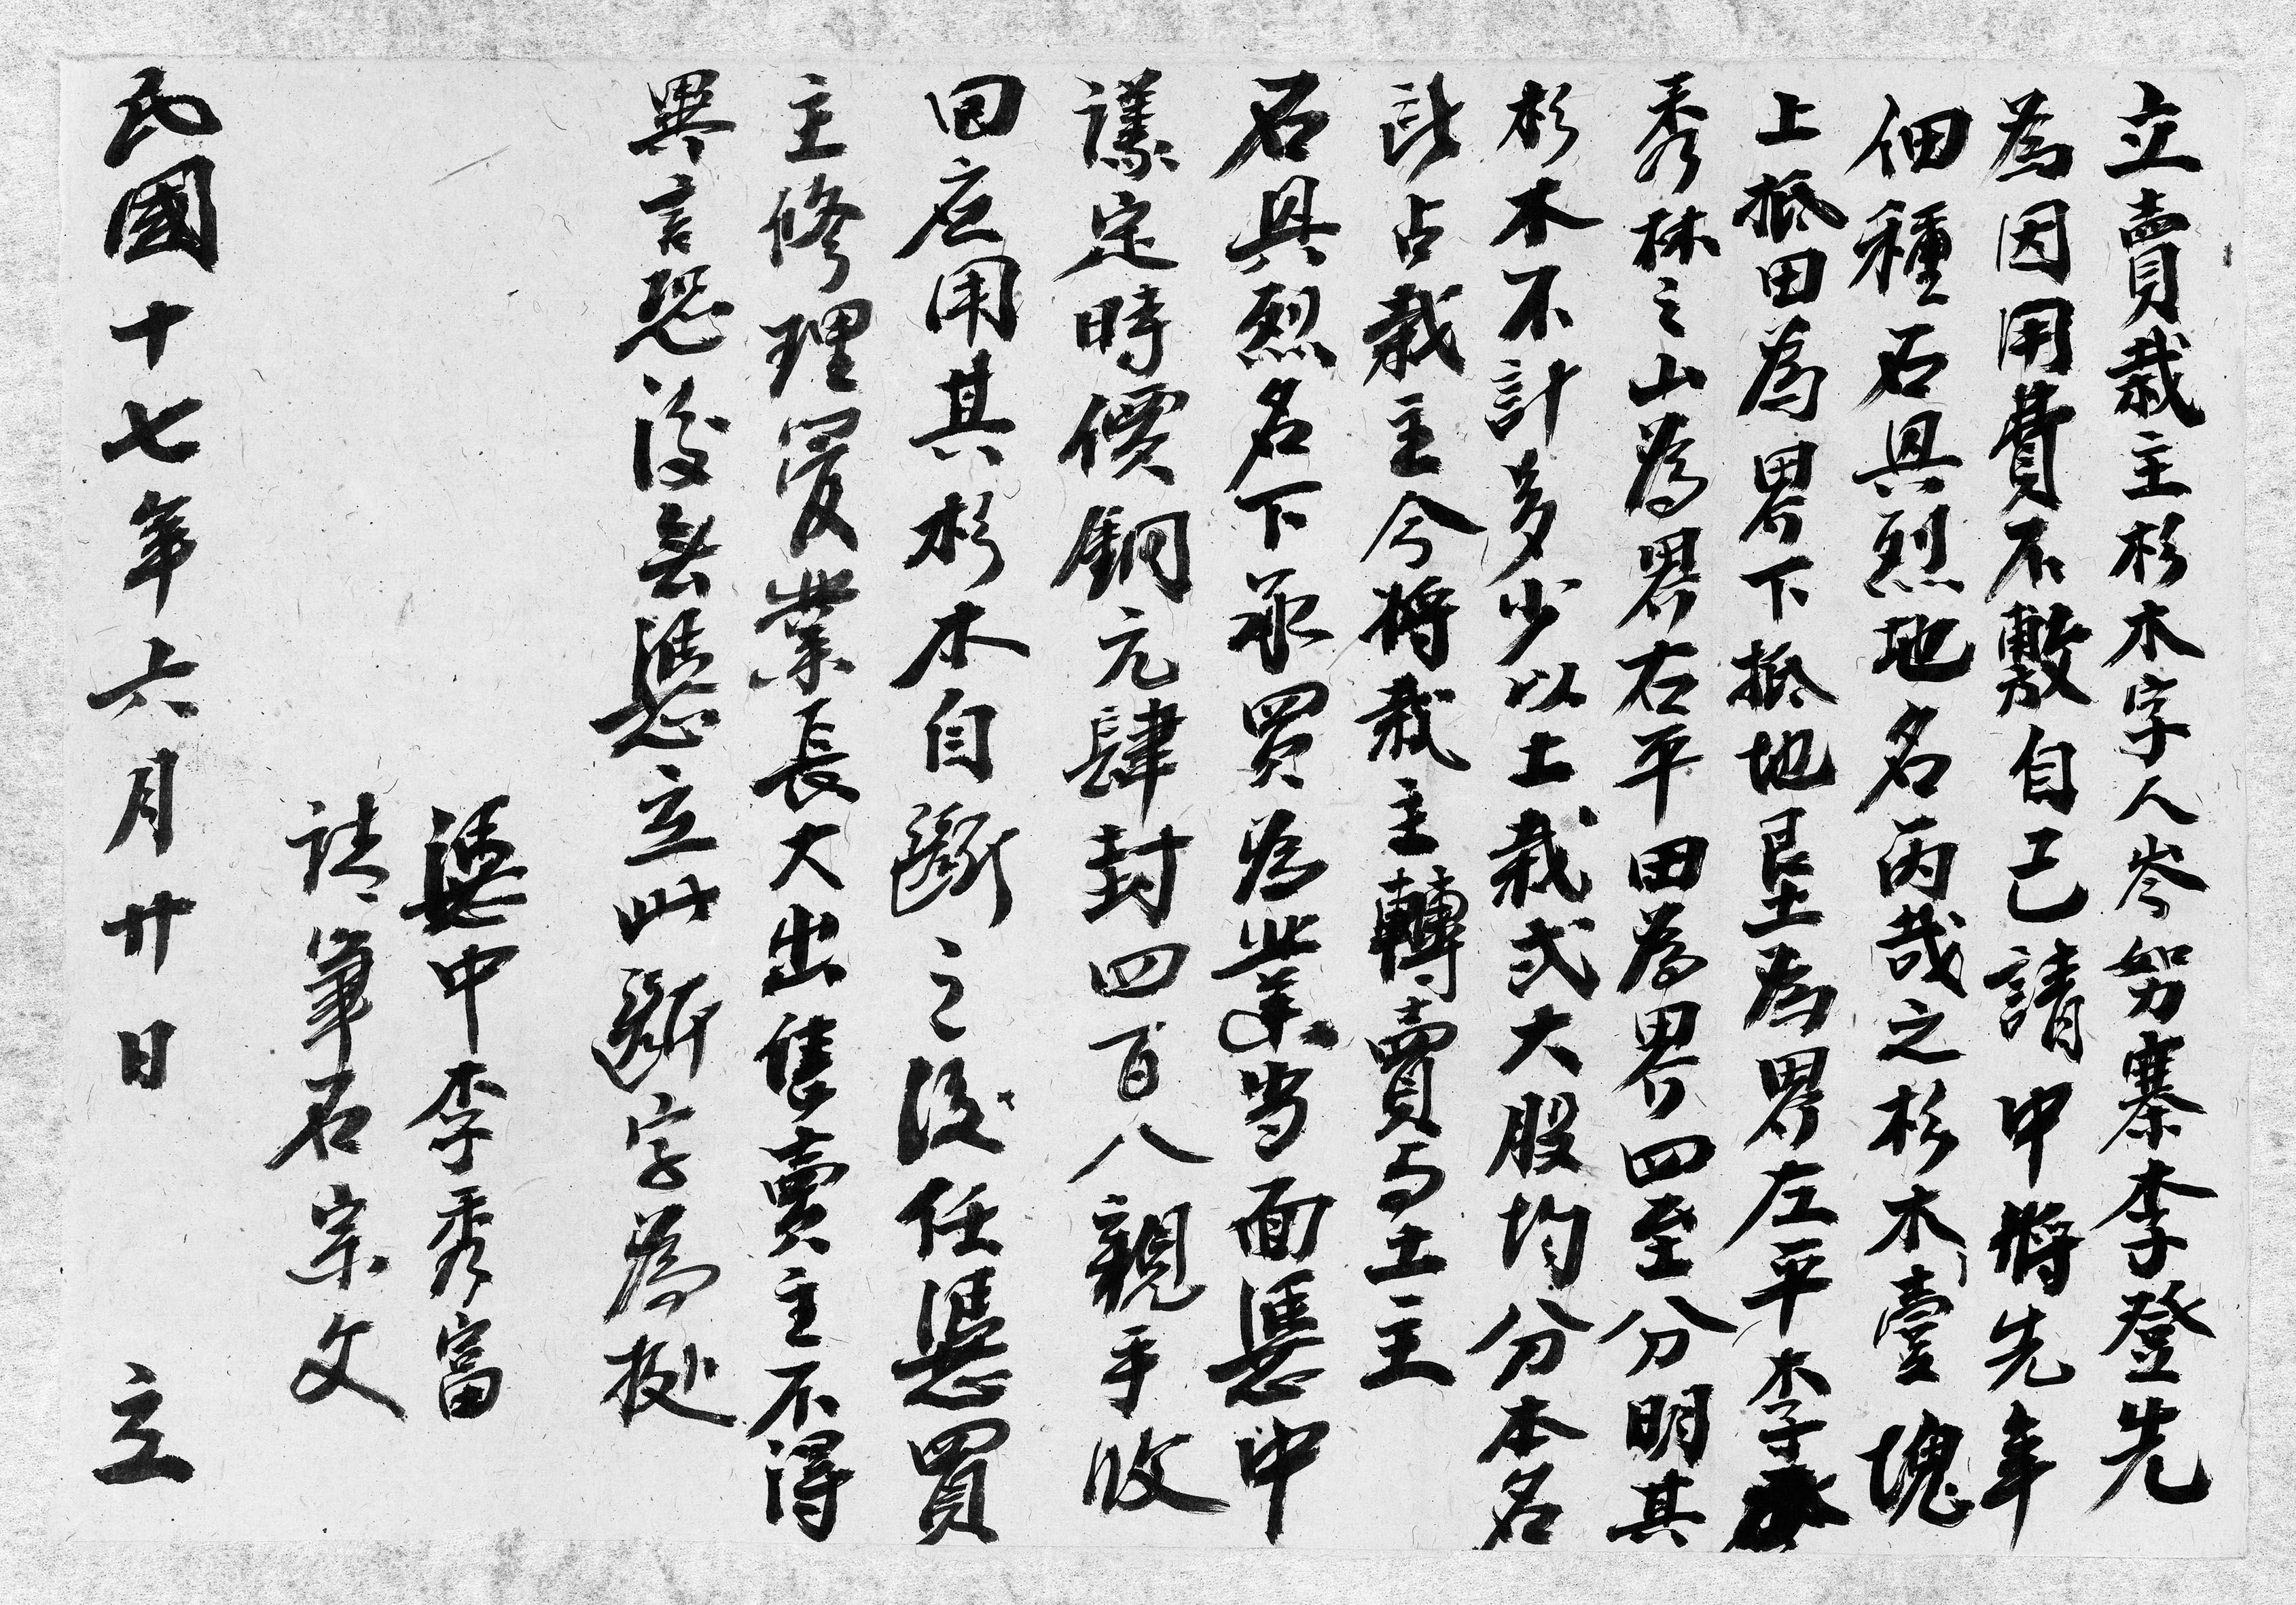 立賣栽主杉木字人岑努寨李登先
為因用費不敷自己請中將先年
佃種石具烈地名丙哉之杉木壹塊
上抵田為界下抵地垦为界左平李
秀林之山為界右平田為界四至分明其
杉木不計多少以土栽弍大股均分本名
此占栽主今將栽主轉賣与土主
石具烈名下承買為業当面憑中
議定時價銅元肆封四百八親手收
回应用其杉木自斷之後任憑買
主修理管業長大出售賣主不得
異言恐後無憑立此斷字為据
憑中李秀富
請筆石宗文
民國十七年六月廿日 立